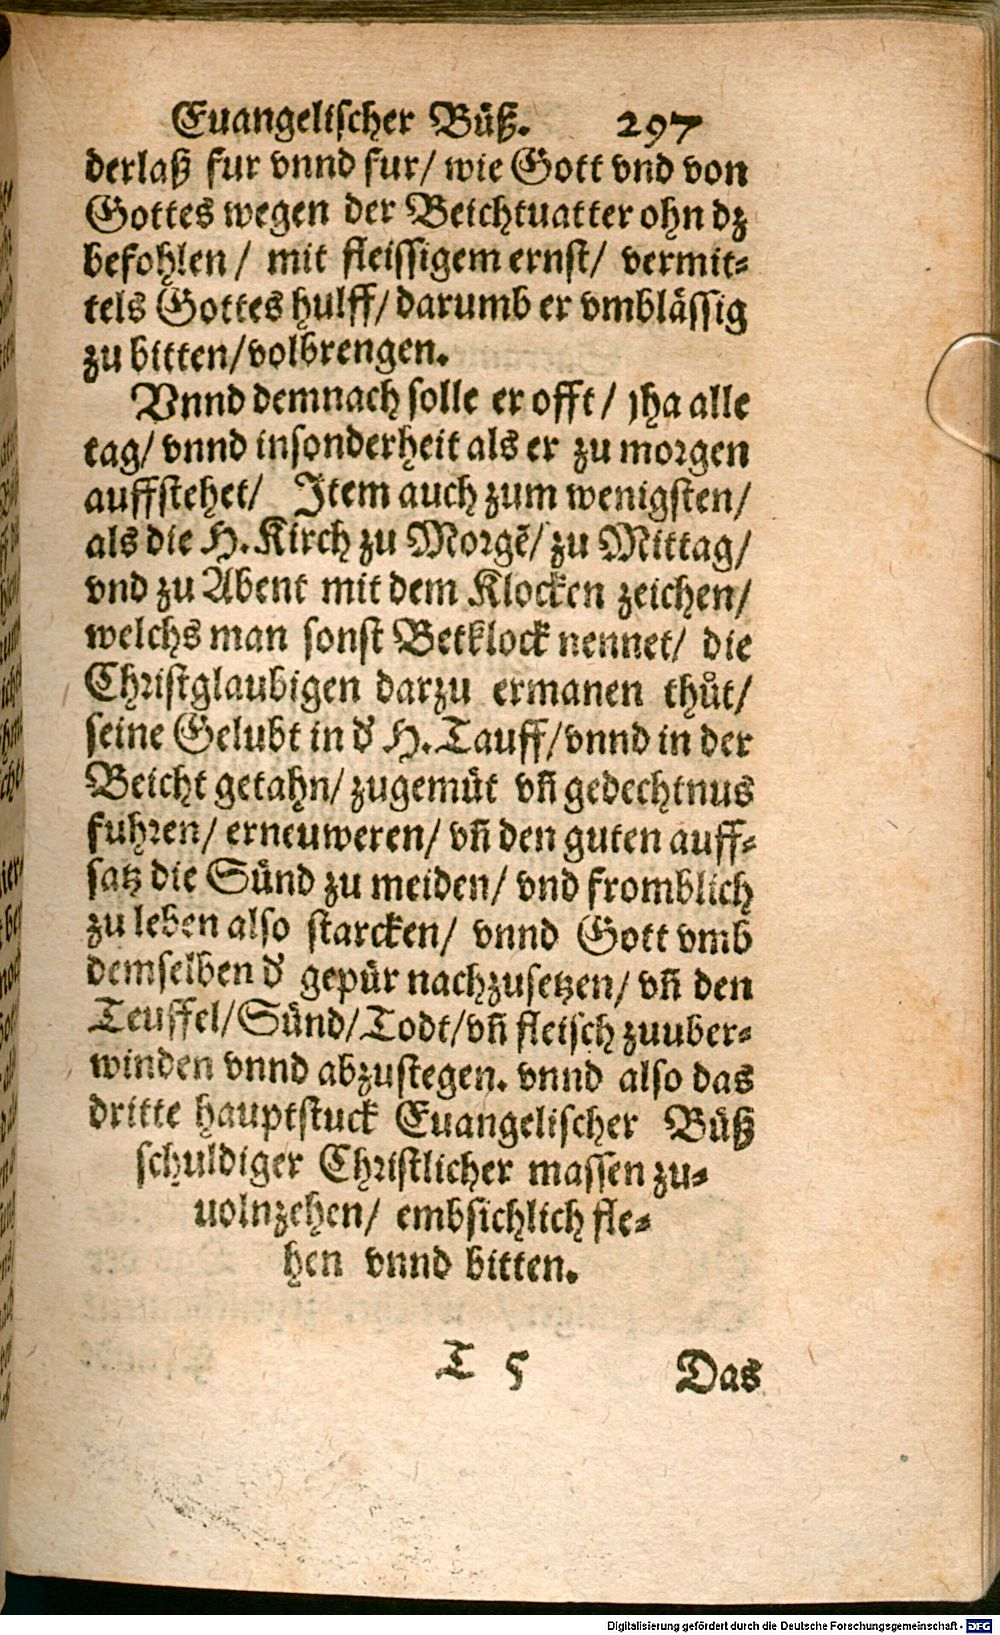 Euangelischer Büß. 297
derlaß fur vnnd fur/ wie Gott vnd von
Gottes wegen der Beichtuatter ohn dz
befohlen/ mit fleissigem ernst/ vermit-
tels Gottes hulff/ darumb er vmblässig
zu bitten/ volbrengen.
Vnnd demnach solle er offt/ jha alle
tag/ vnnd insonderheit als er zu morgen
auffstehet/ Item auch zum wenigsten/
als die H. Kirch zu Morgẽ/ zu Mittag/
vnd zu Abent mit dem Klocken zeichen/
welchs man sonst Betklock nennet/ die
Christglaubigen darzu ermanen thůt/
seine Gelubt in d' H. Tauff/ vnnd in der
Beicht getahn/ zugemüt vñ gedechtnus
fuhren/ erneuweren/ vñ den guten auff-
satz die Sünd zu meiden/ vnd fromblich
zu leben also starcken/ vnnd Gott vmb
demselben d' gepür nachzusetzen/ vñ den
Teuffel/ Sünd/ Todt/ vñ fleisch zuuber-
winden vnnd abzustegen. vnnd also das
dritte hauptstuck Euangelischer Büß
schuldiger Christlicher massen zu-
uolnzehen/ embsichlich fle-
hen vnnd bitten.
T 5 Das
Digitalisierung gefördert durch die Deutsche Forschungsgemeinschaft - DFG